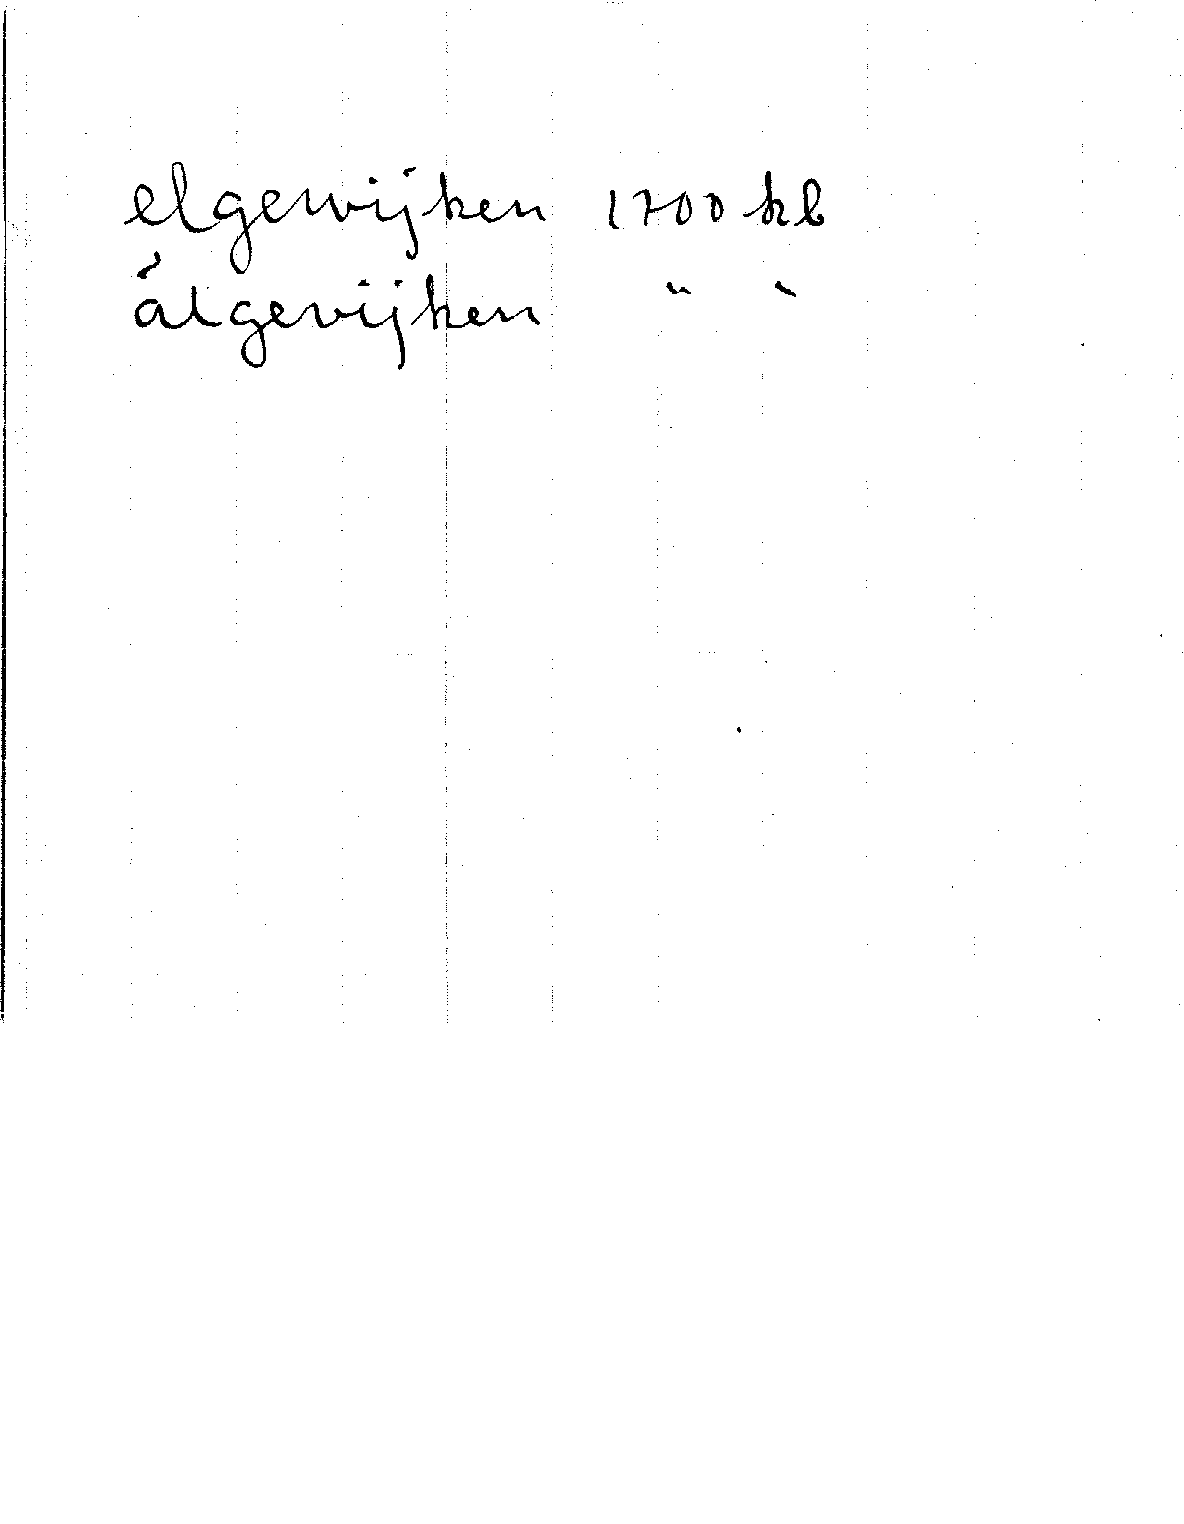 elgewijken 1700 kb
älgevijken " "